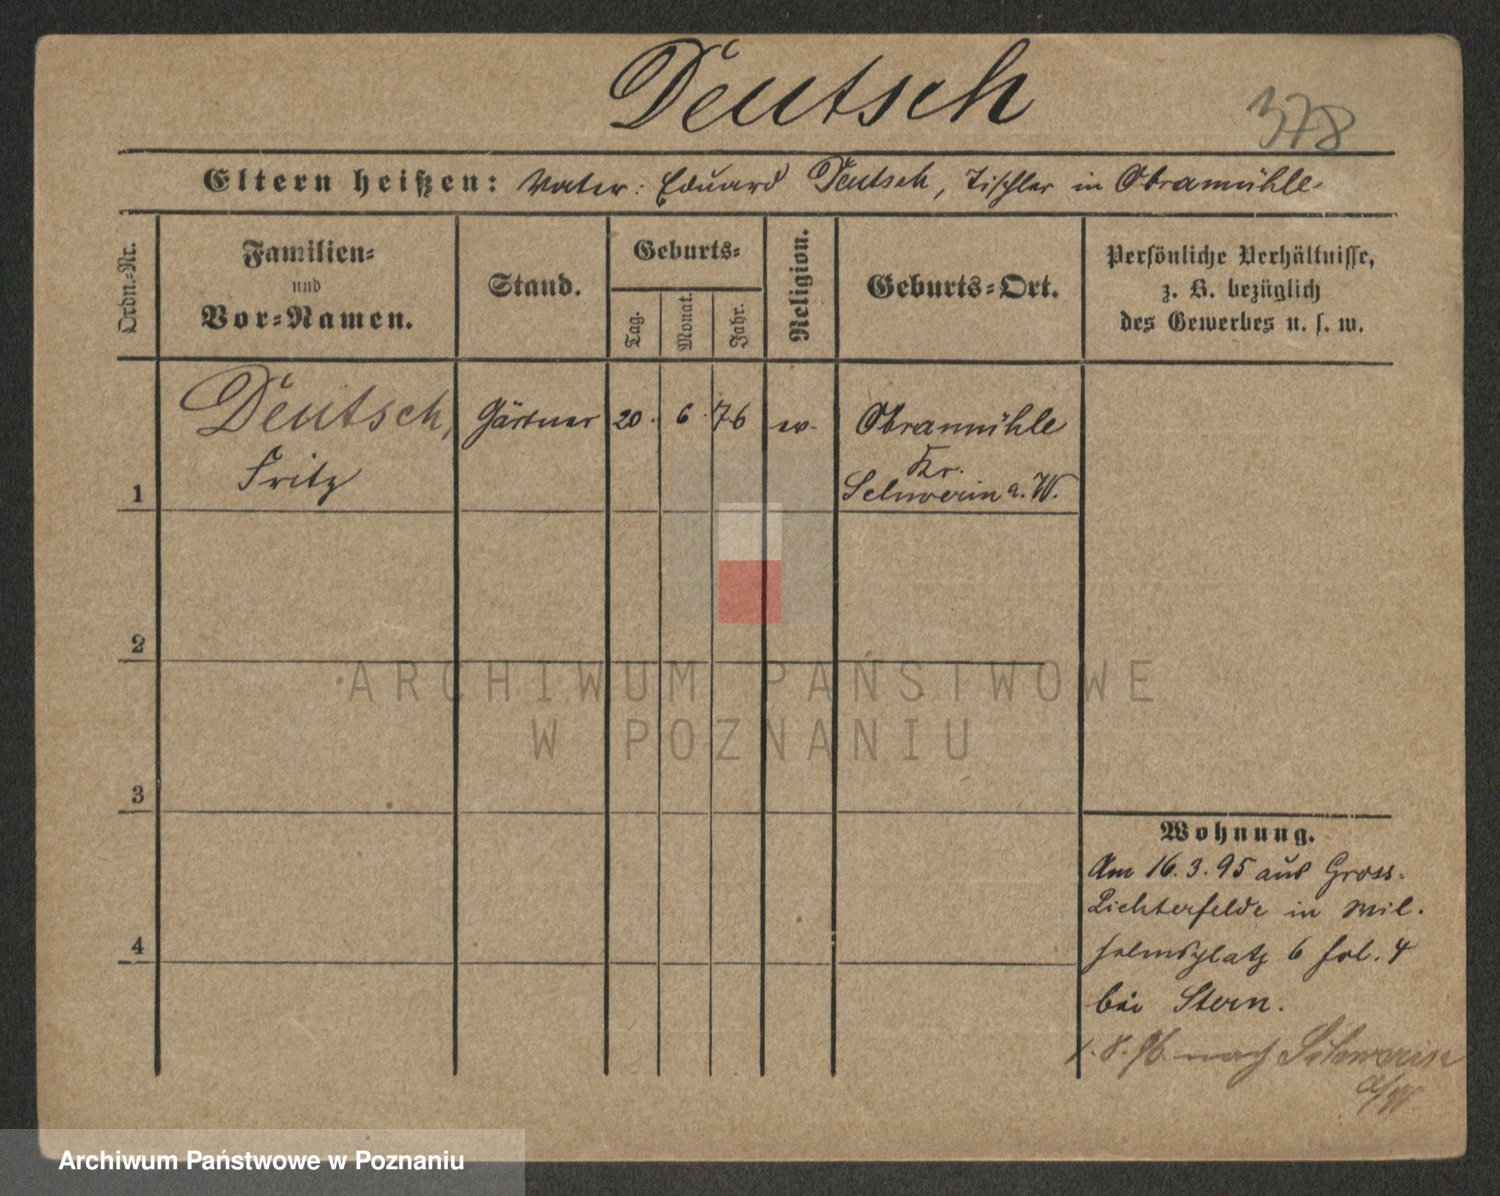 Deutsch
378
Eltern heißen: Vater: Eduard Deutsch, Tischler in Obramühle.
Ordn.-Nr.
Familien-
und
Vor-Namen.
Stand.
Geburts-
Tag.
Monat.
Jahr.
Religion.
Geburts-Ort.
Persönliche Verhältnisse,
z. B. bezüglich
des Gewerbes u. s. w.
Deutsch, Gärtner 20. 6. 76 ev. Obramühle
Fritz
Kr.
1 Schwerin a. W.
2
ARCHIWUM PAŃSTWOWE
W POZNANIU
3
Wohnung.
Am 16. 3. 95 aus Gross-
Lichterfelde in Wil-
helmsplatz 6 fol. 4
4
bei Stern.
1. 8. 96 nach Schwerin
a/W
Archiwum Państwowe w Poznaniu